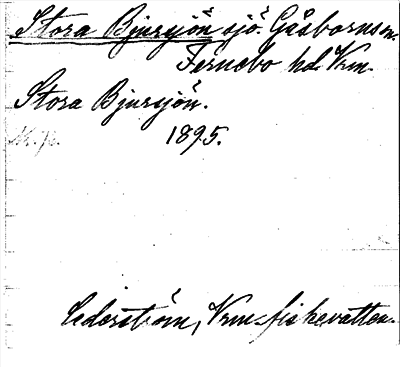 Stora Bjursjön sjö. Gåsborns sn.
Fernebo hd. Vrm.
Stora Bjursjön.
1895.
Cederström, Vrm-fiskevatten.